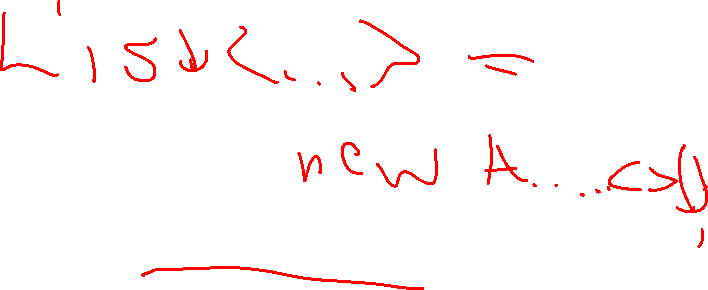 List<...> =
new A....<>();